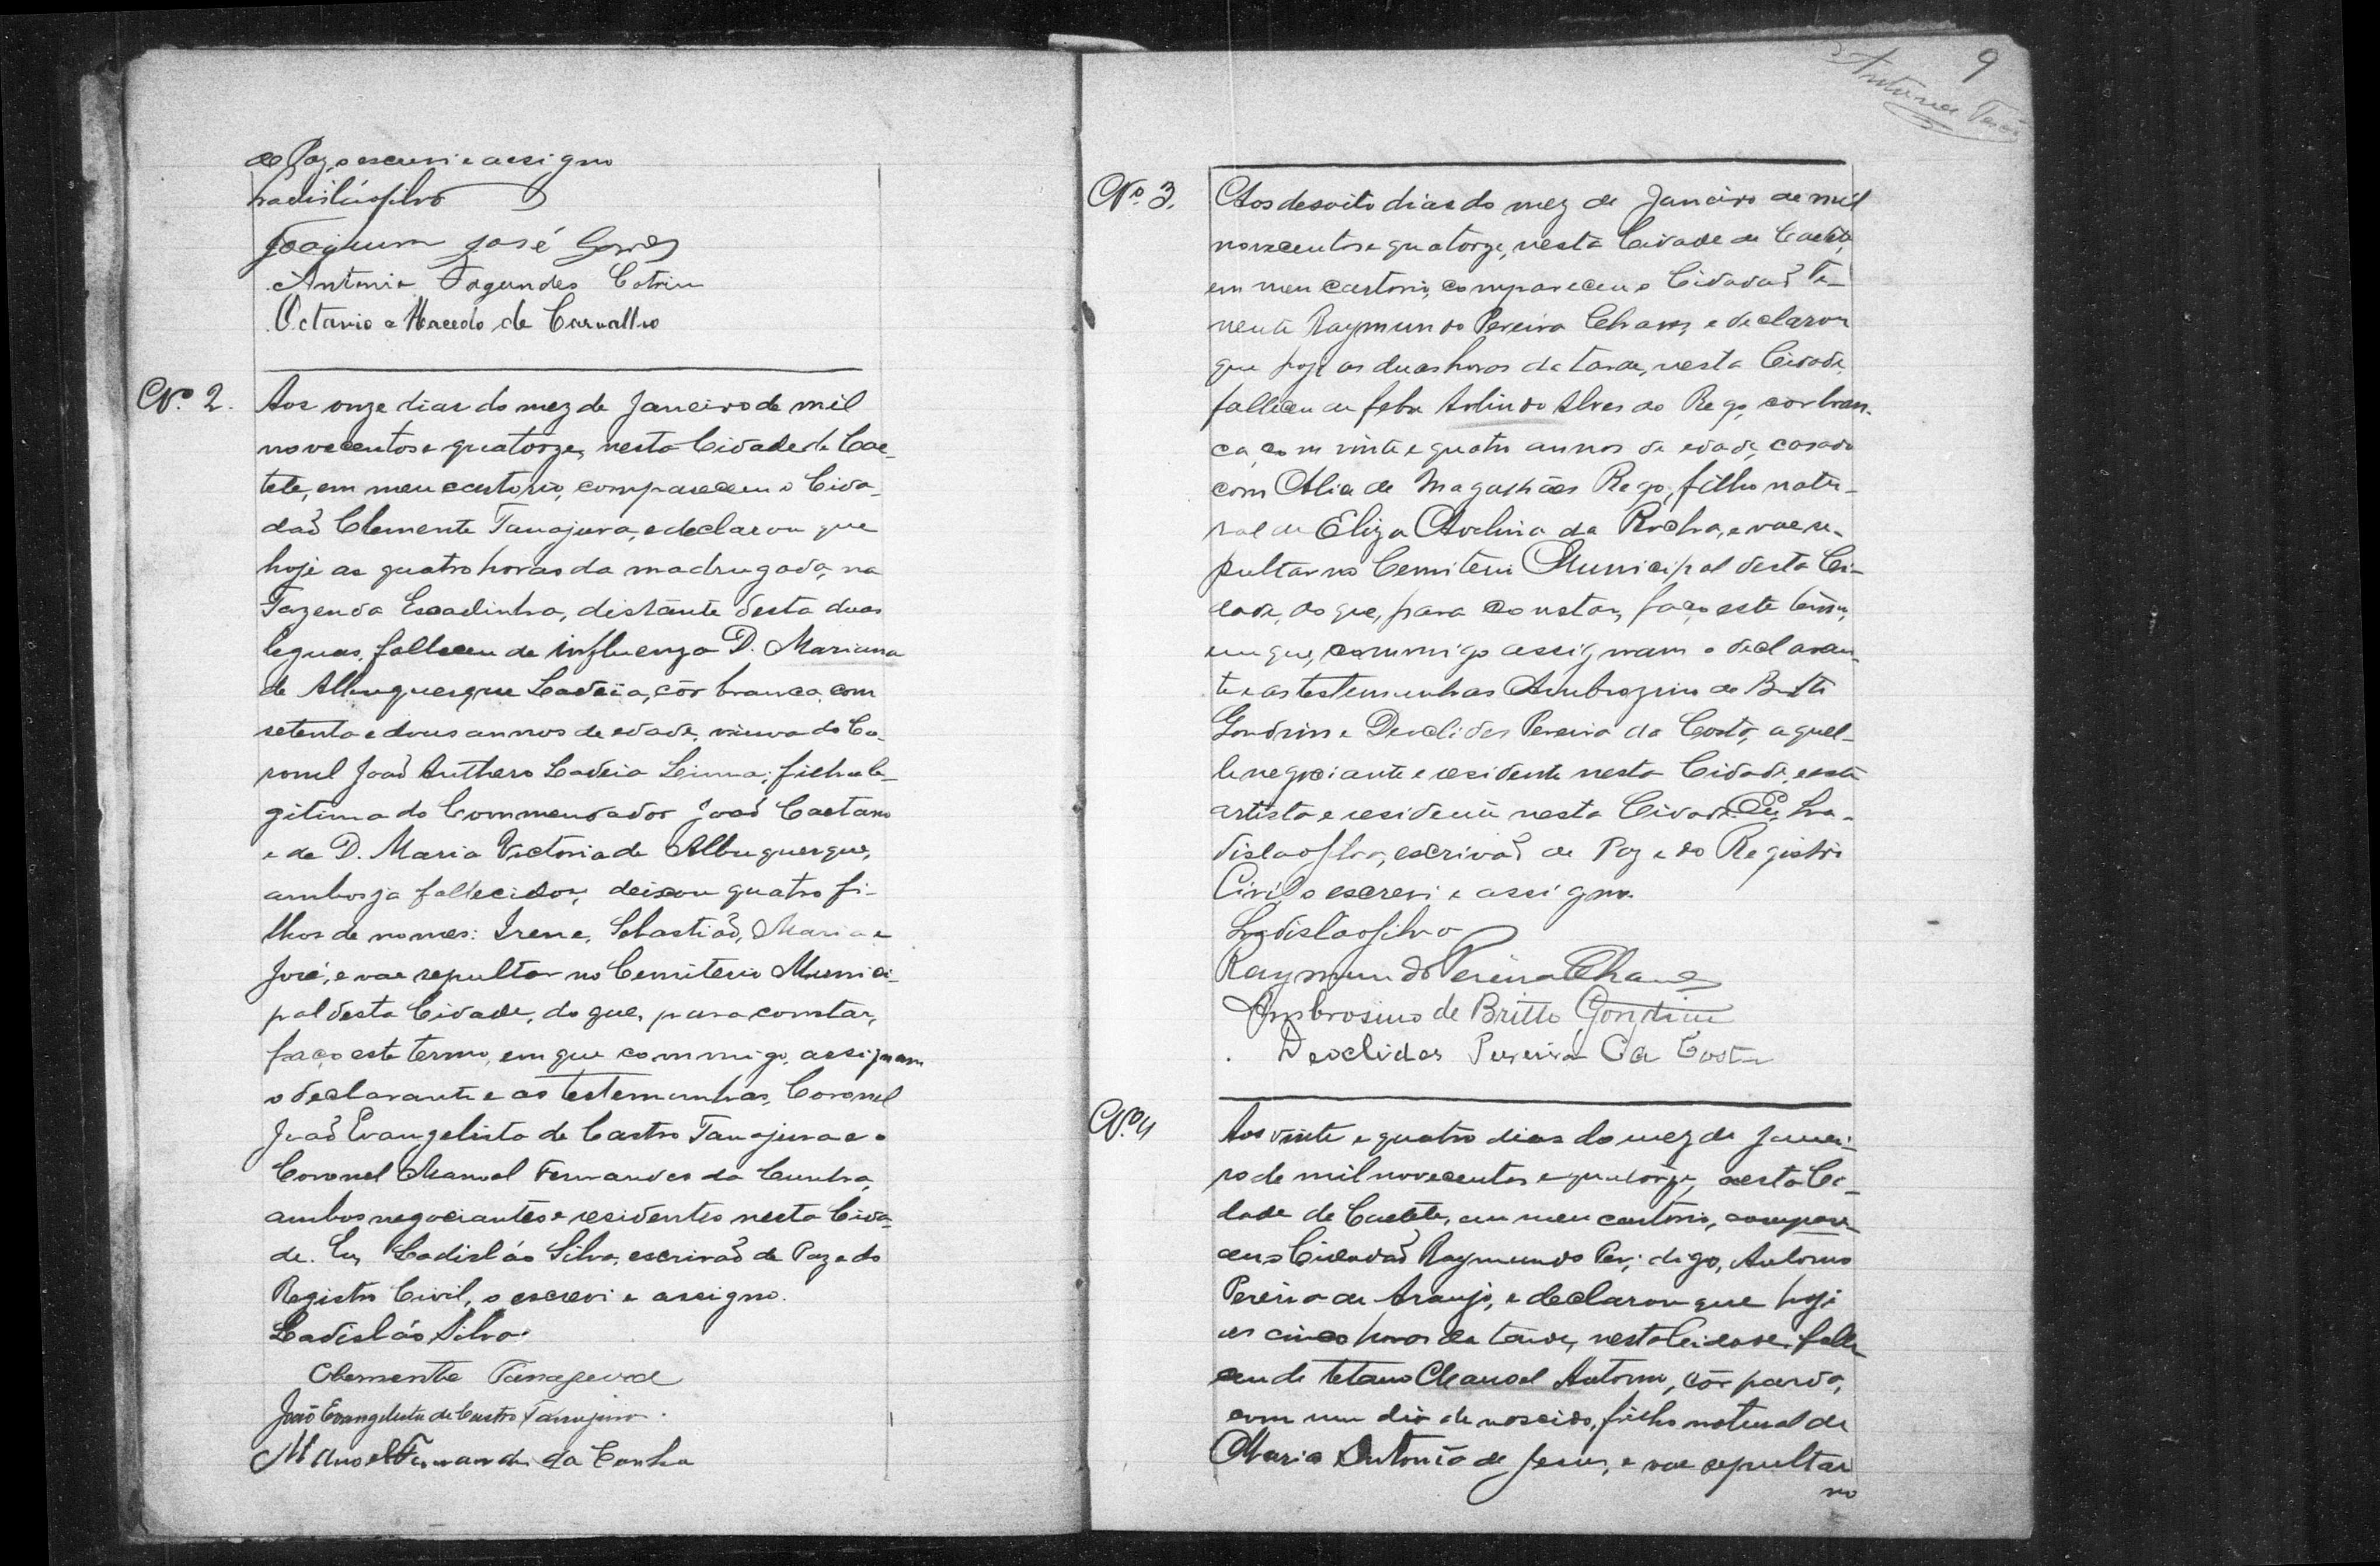 de Paz, o escrevi e assigno
Ladisláo Silva
Joaquim José Gomes
Antonio Fagundes Cotrim
Octavio a Macedo de Carvalho
Nº 2.
Aos onze dias do mez de Janeiro de mil
novecentos e quatorze, nesta Cidade de Cae-
teté, em meu cartorio, compareceu o Cida-
daõ Clemente Tanajura, e declarou que
hoje as quatro horas da madrugada, na
Fazenda Escadinha, distante desta duas
leguas, falleceu de influenza D. Mariana
de Albuquerque Ladeia, côr branca, com
setenta e dous annos de edade, viuva do Co-
ronel Joaõ Anthero Ladeia, filha le-
gitima do Commendador Joaõ Caetano
e de D. Maria Victoria de Albuquerque,
ambos ja fallecidos, deixou quatro fi-
lhos de nomes: Irene, Sebastiaõ, Maria e
José, e vae sepultar no Cemiterio Munici-
pal desta Cidade, do que, para constar,
faço este termo, em que commigo, assignam
o declarante e as testemunhas, Coronel
Joaõ Evangelista de Castro Tanajura e o
Coronel Manoel Fernandes da Cunha,
ambos negociantes e residentes nesta Cida-
de. Eu, Ladisláo Silva, escrivaõ de Paz e do
Registro Civil, o escrevi e assigno.
Ladisláo Silva
Clemente Tanajura
João Evangelista de Castro Tanajura.
Manoel Fernandes da Cunha
9
Nº 3.
Aos desoito dias do mez de Janeiro de mil
novecentos e quatorze, nesta Cidade de Caeteté,
em meu cartorio, compareceu o Cidadaõ Te-
nente Raymundo Pereira Chaves, e declarou
que hoje as duas horas da tarde, nesta Cidade,
falleceu de febre Arlindo Alves do Rego, cor bran-
ca, com vinte e quatro annos de edade, casado
com Alice de Magalhães Rego, filho natu-
ral de Eliza Avelina da Rocha, e vae se-
pultar no Cemiterio Municipal desta Ci-
dade, do que, para constar, faço este termo,
em que, commigo assignam o declaran-
te e as testemunhas Ambrozino de Britto
Gondim e Deoclides Pereira da Costa, aquel-
le negociante e residente nesta Cidade, e este
artista e residente nesta Cidade. Eu, La-
disláo Silva, escrivaõ de Paz e do Registro
Civil, o escrevi e assigno.
Ladisláo Silva
Raymundo Pereira Chaves
Ambrosino de Britto Gondim
Deoclides Pereira da Costa
Nº 4
Aos vinte e quatro dias do mez de Janei-
ro de mil novecentos e quatorze, nesta Ci-
dade de Caeteté, em meu cartorio, compare-
ceu o Cidadaõ Raymundo Per; digo, Antonio
Pereira de Araujo, e declarou que hoje
as cinco horas da tarde, nesta Cidade, falle-
ceu de tetano Manoel Antonio, côr parda,
com um dia de nascido, filho natural de
Maria Antonia de Jesus, e vae sepultar
no